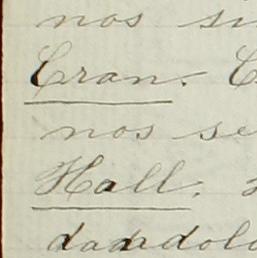 nos si
Cran. C
nos se
Hall.
dandola